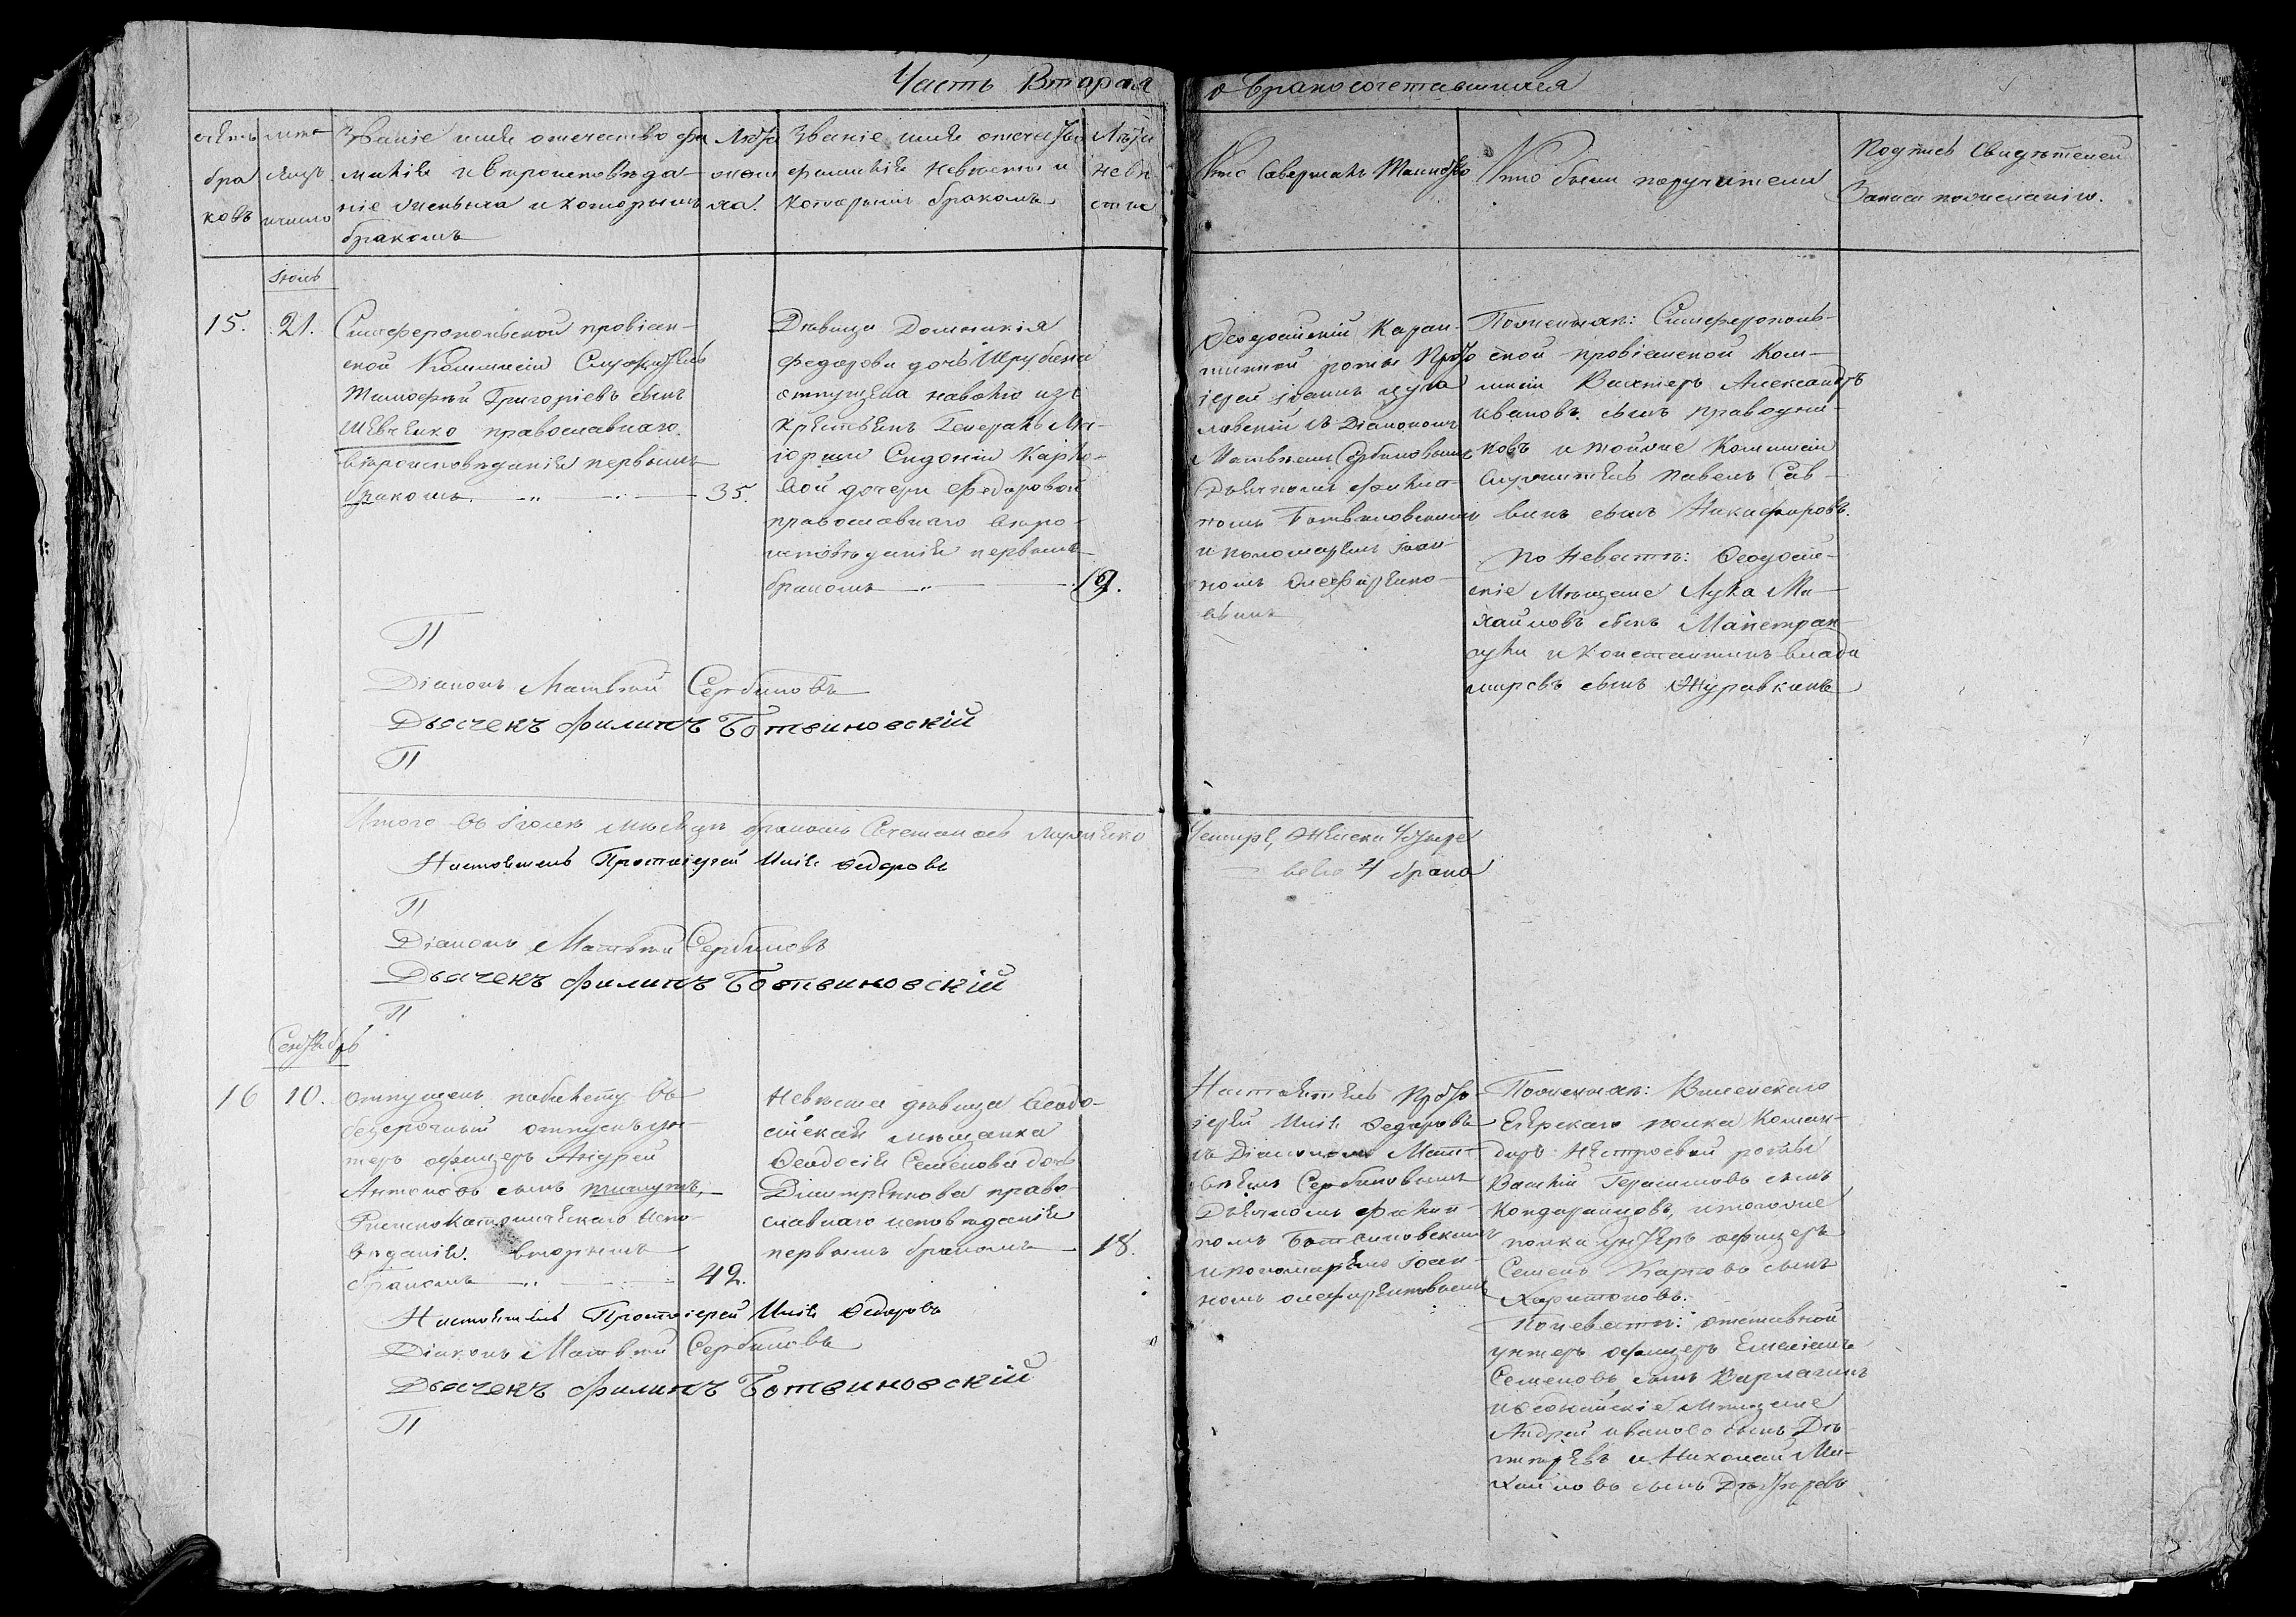 Часть Вторая о бракосочетавшихся
счетъ
бра
ковъ
Званіе имя отечество фа
милія и вѣроисповѣда-
ніе жениха и которымъ
бракомъ
Лѣта
жени
ха.
Званіе имя отечество
фамилія невѣсты и
которымъ бракомъ
Лѣта
невѣ
сты
Кто совершалъ таинство
Кто были поручители
Подпись свидѣтелей
Записи по желанію.
Іюль
15.
21.
Симферопольской провіан-
ской Коммисіи Служитель
Тимофѣй Григоріевъ сынъ
Шевченко православнаго
вѣроисповѣданія первымъ
бракомъ.
35.
Дѣвица Домникія
Федорова дочь
отпущена на волю изъ
крестьянъ Генералъ Ма-
іорши Сидоніи Карло-
вой дочери Федоровой
православнаго вѣро-
исповѣданія первымъ
бракомъ
19.
Феодосійскій Каран-
тинной роты Прото
іерей Іоаннъ
съ Діакономъ
Матвѣемъ Сербиновымъ
Дьячкомъ Филип-
помъ Ботвиновскимъ
и пономаремъ Іоан-
номъ
вымъ
По женихѣ: Симферополь-
ской провіанской Ком-
мисіи Вахтеръ Александръ
Ивановъ сынъ
ковъ и тойже Коммисіи
служитель Павелъ Сав-
винъ сынъ Никифоровъ.
По невестѣ: Феодосій-
скіе Мѣщане Лука Ми-
хайловъ сынъ
и Константинъ Влади
мировъ сынъ Журавкинъ
П
Діаконъ Матвѣй Сербиновъ
Дьячекъ Филипъ Ботвиновскій
П
Итого въ Іюлѣ мѣсяцѣ бракомъ сочеталось мужеска
Четыре, женска Четыре
всего 4 брака
Настоятель Протоіерей Илія Федоровъ
П
Діаконъ Матвѣй Сербиновъ
Дьячекъ Филипъ Ботвиновскій
П
Сентябрь
16
10.
Отпущенъ по билету въ
безсрочный отпускъ ун-
теръ офицеръ Андрей
Антоновъ сынъ
Римско Католическаго испо-
вѣданія. вторымъ
бракомъ
42.
Невѣста дѣвица Феодо-
сійская мѣщанка
Феодосія Семенова дочь
Дмитренкова право-
славнаго исповѣданія
первымъ бракомъ
18.
Настоятель Прото-
іерей Илія Федоровъ
съ Діакономъ Мат-
вѣемъ Сербиновымъ
Дьячкомъ Филип-
помъ Ботвиновскимъ
и пономаремъ Іоан-
номъ
По женихѣ: Виленскаго
Егерскаго полка Коман-
диръ Нестроевой роты
Василій Герасимовъ сынъ
Кондаранцовъ, и тогоже
полка унтеръ офицеръ
Семенъ Карповъ сынъ
Харитоновъ.
По невестѣ: отставной
унтеръ офицеръ Емеліанъ
Семеновъ сынъ
и Феодосійскіе мѣщане
Андрей Ивановъ сынъ Дег
теревъ и Николай Ми-
хайловъ сынъ Дегтеревъ
Настоятель Протоіерей Илія Федоровъ
Діаконъ Матвѣй Сербиновъ
Дьячекъ Филипъ Ботвиновскій
П